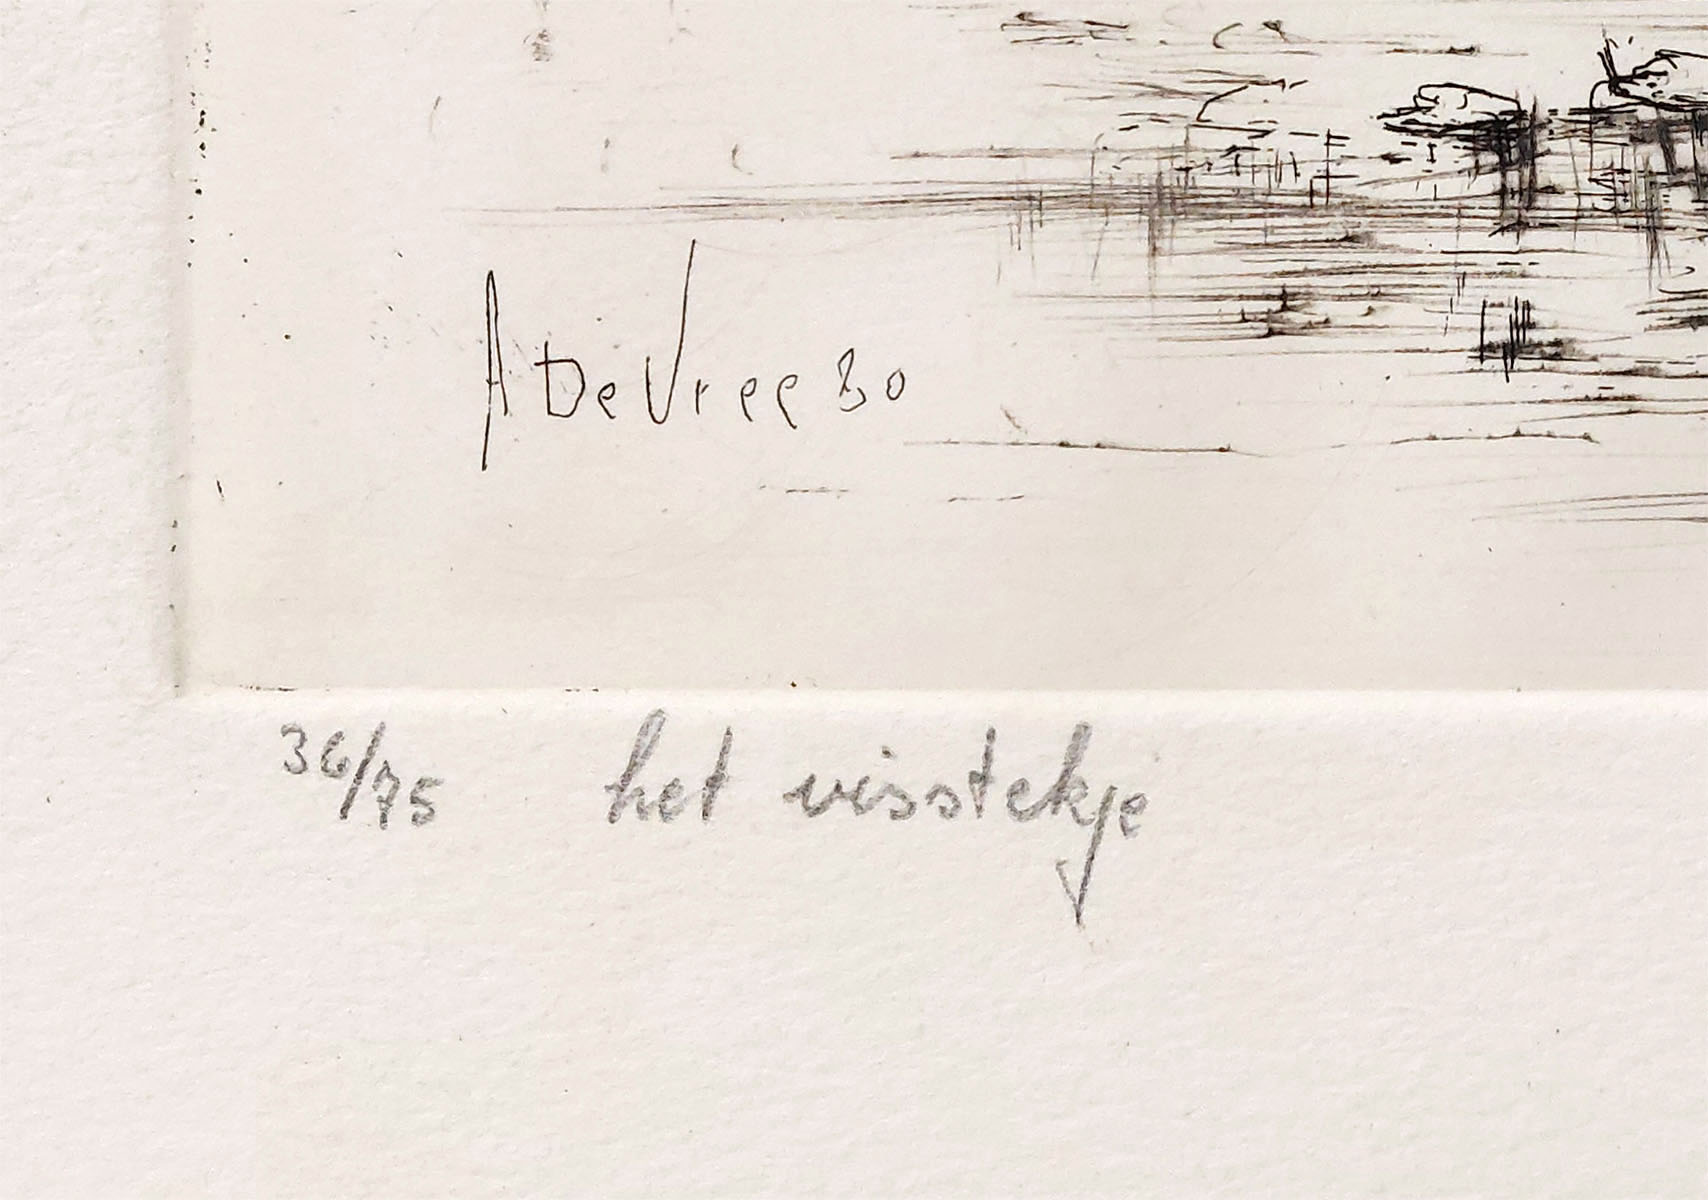 A De Vree 80
36/75 het visstekje